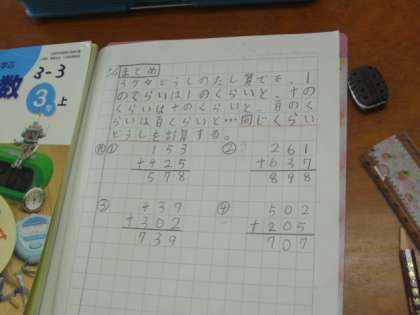 まとめ
3ケタどうしのたし算でも、1
のくらいは1のくらいと、十の
くらいは十のくらいと、百のく
らいは百くらいと…同じくらい
どうしを計算する。
① 153
+425
578
② 261
+637
898
③ 437
+302
739
④ 502
+205
707
数
3-3
3年
上